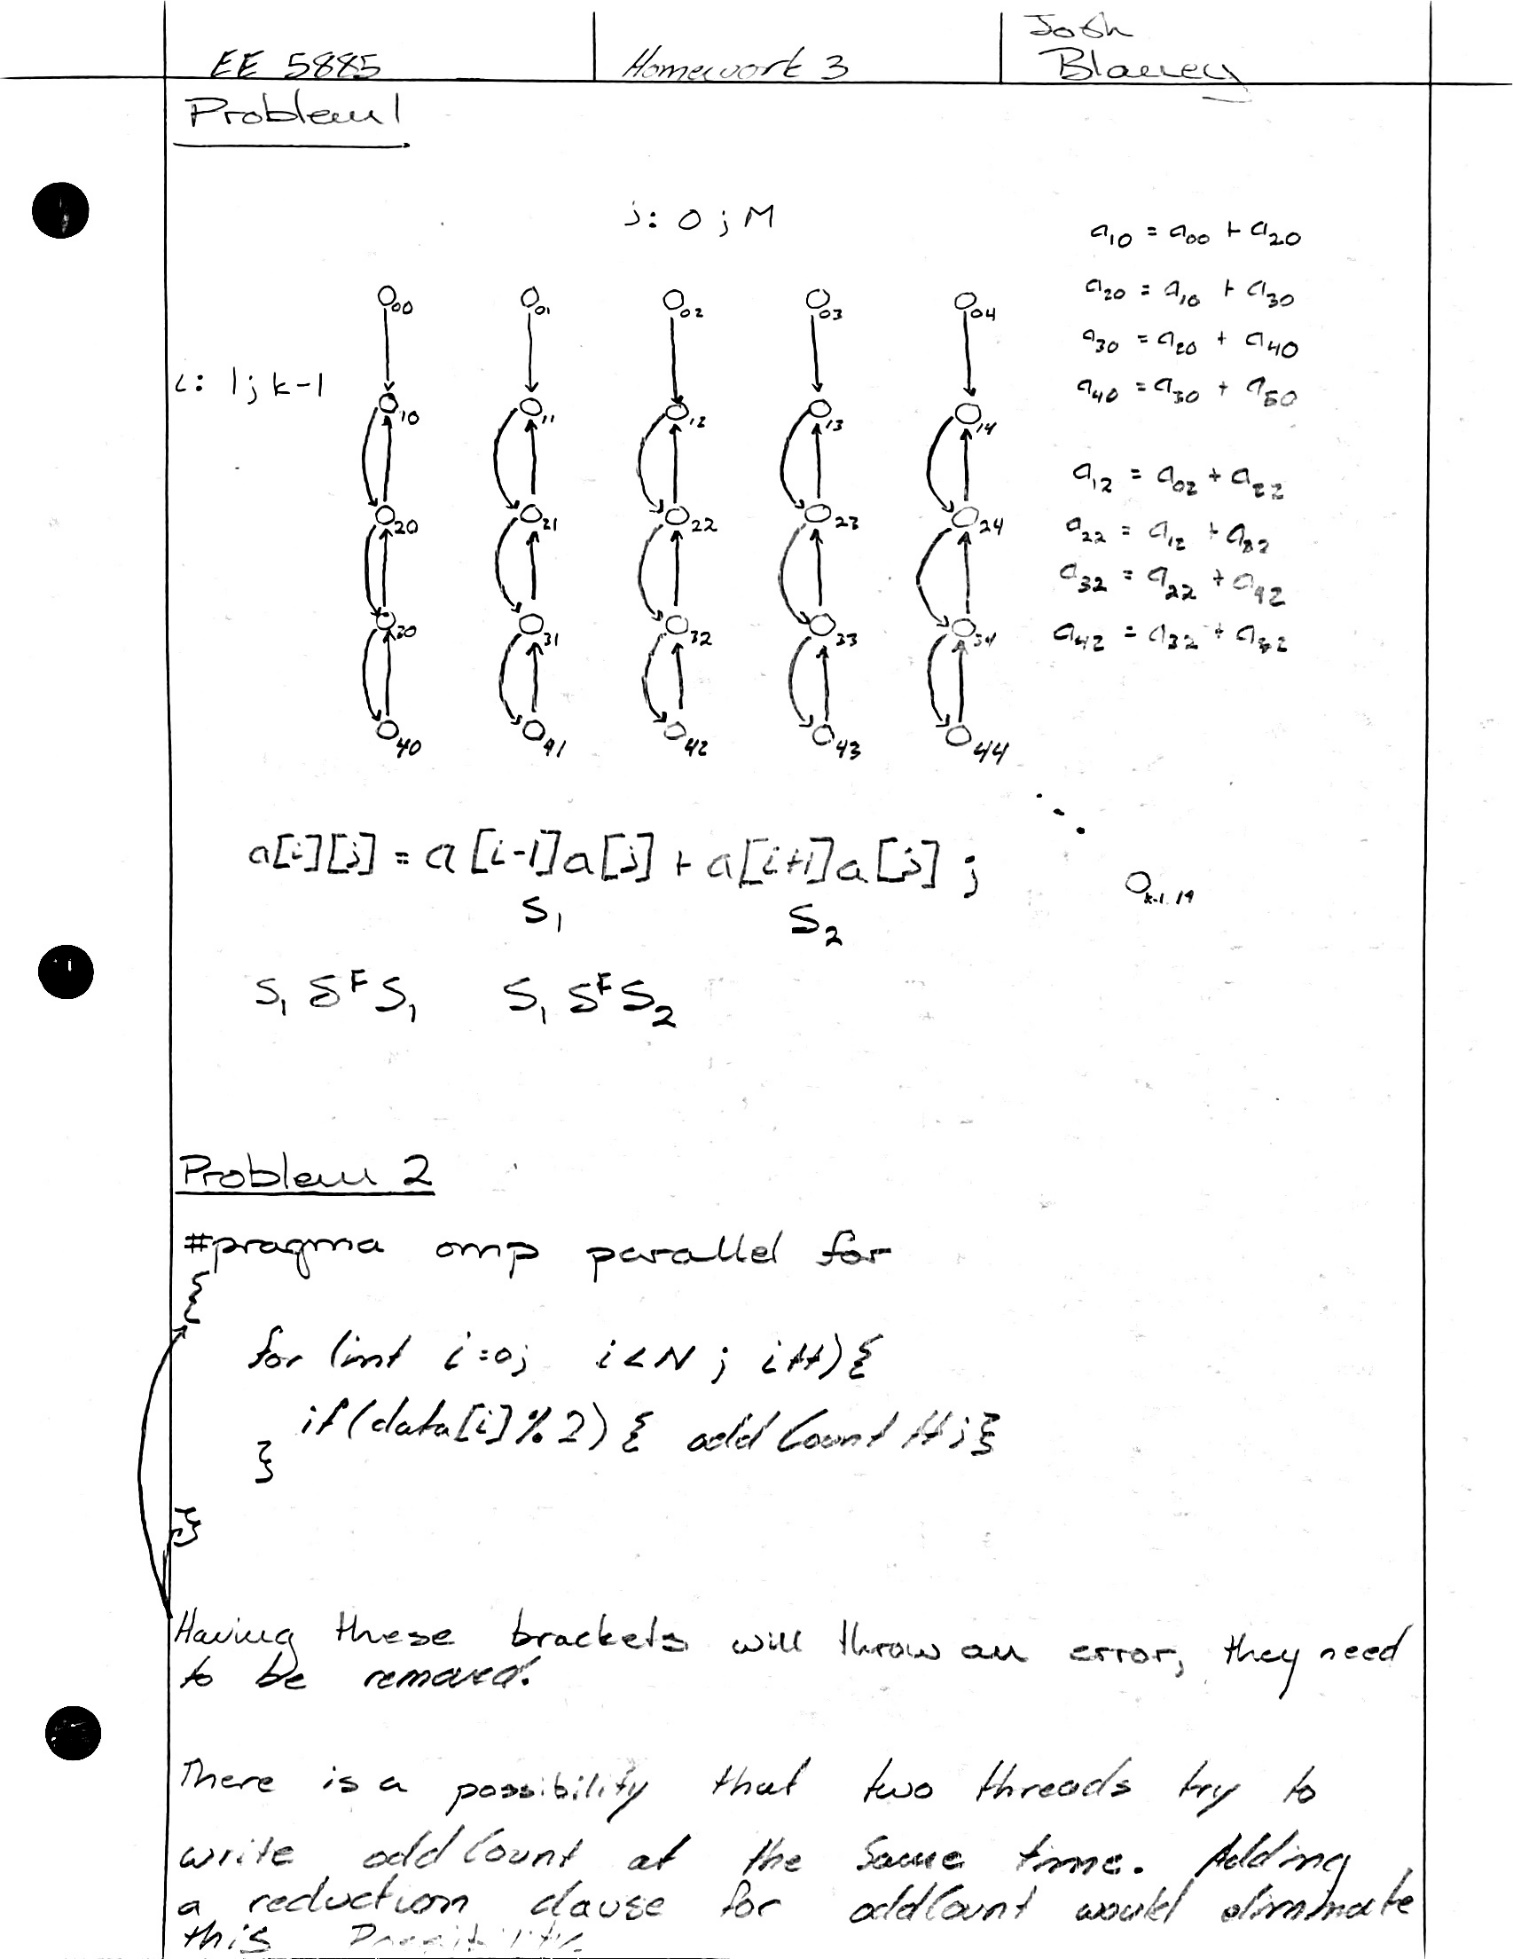 EE 5885 Homework 3 Josh
Blaney
Problem 1
j: 0 ; M
i: 1; k-1
00 01 02 03 04
10 11 12 13 14
20 21 22 23 24
30 31 32 33 34
40 41 42 43 44
a10 = a00 + a20
a20 = a10 + a30
a30 = a20 + a40
a40 = a30 + a50
a12 = a02 + a22
a22 = a12 + a32
a32 = a22 + a42
a42 = a32 + a52
k-1,19
a[i][j] = a[i-1]a[j] + a[i+1]a[j] ;
S1 S2
S1 δF S1 S1 δF S2
Problem 2
#pragma omp parallel for
{
for (int i=0; i<N ; i++){
if(data[i]%2){ oddCount++;}
}
}
Having these brackets will throw an error, they need
to be removed.
There is a possibility that two threads try to
write oddCount at the same time. Adding
a reduction clause for oddCount would eliminate
this